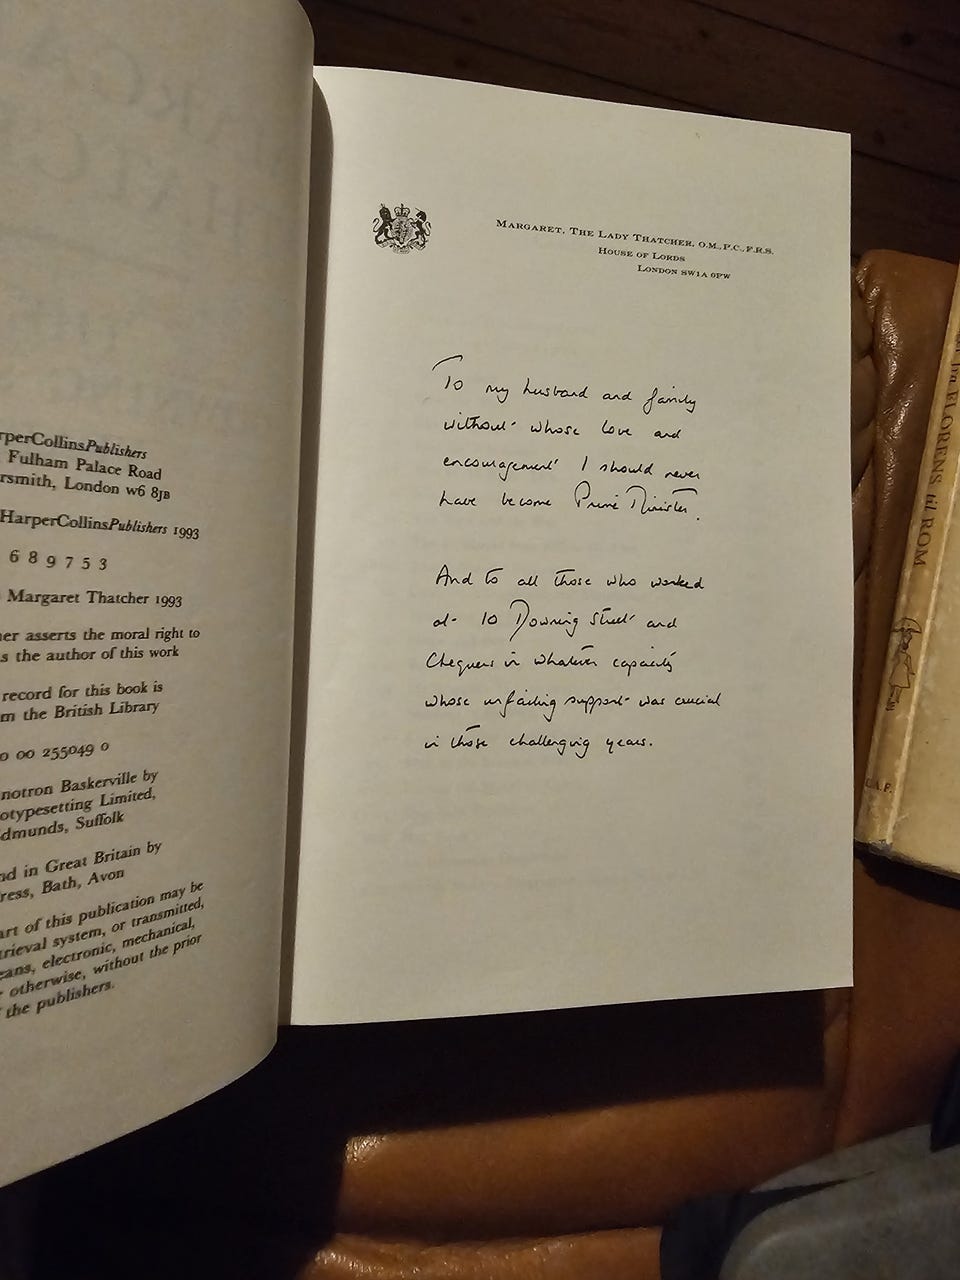 rperCollinsPublishers
Fulham Palace Road
rsmith, London w6 8JB
HarperCollinsPublishers 1993
6 8 9 7 5 3
Margaret Thatcher 1993
er asserts the moral right to
s the author of this work
record for this book is
m the British Library
0 00 255049 0
notron Baskerville by
otypesetting Limited,
dmunds, Suffolk
nd in Great Britain by
ress, Bath, Avon
art of this publication may be
trieval system, or transmitted,
eans, electronic, mechanical,
otherwise, without the prior
the publishers.
MARGARET, THE LADY THATCHER, O.M., P.C., F.R.S.
HOUSE OF LORDS
LONDON SW1A 0PW
To my husband and family
without whose love and
encouragement I should never
have become Prime Minister.
And to all those who worked
at 10 Downing Street and
Chequers in whatever capacity
whose unfailing support was crucial
in those challenging years.
FLORENS til ROM